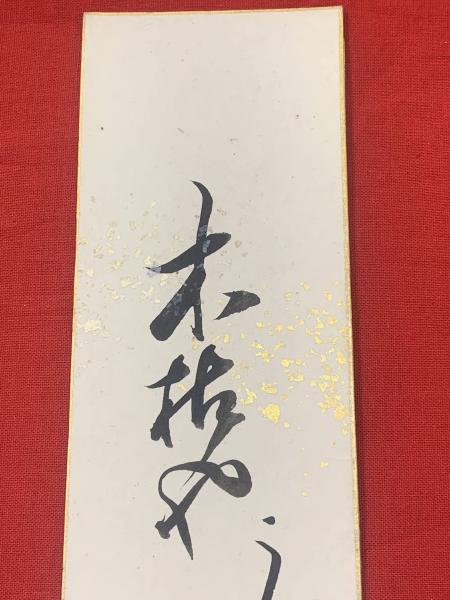 木枯や